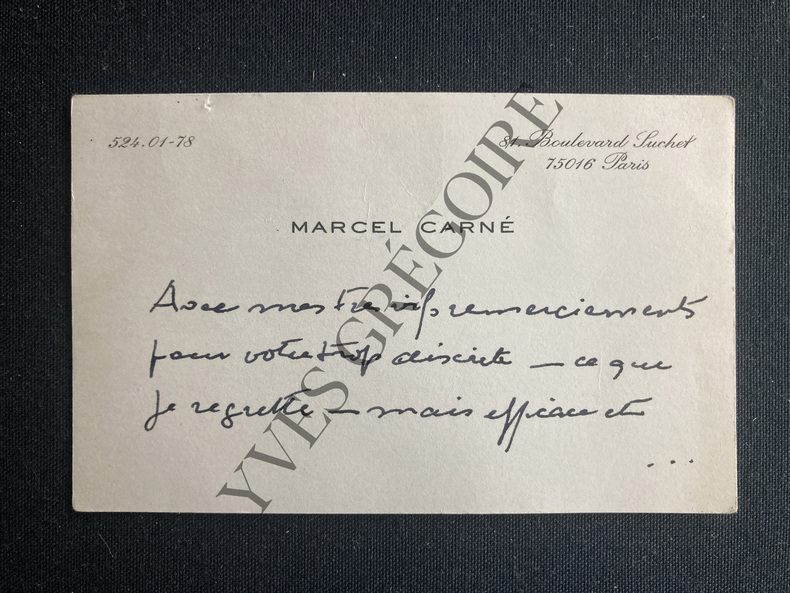 524.01-78
81. Boulevard Suchet
75016 Paris
MARCEL CARNÉ
Avec mes très vifs remerciements
pour votre trop discrète – ce que
je regrette – mais efficace et
...
YVES GRÉGOIRE